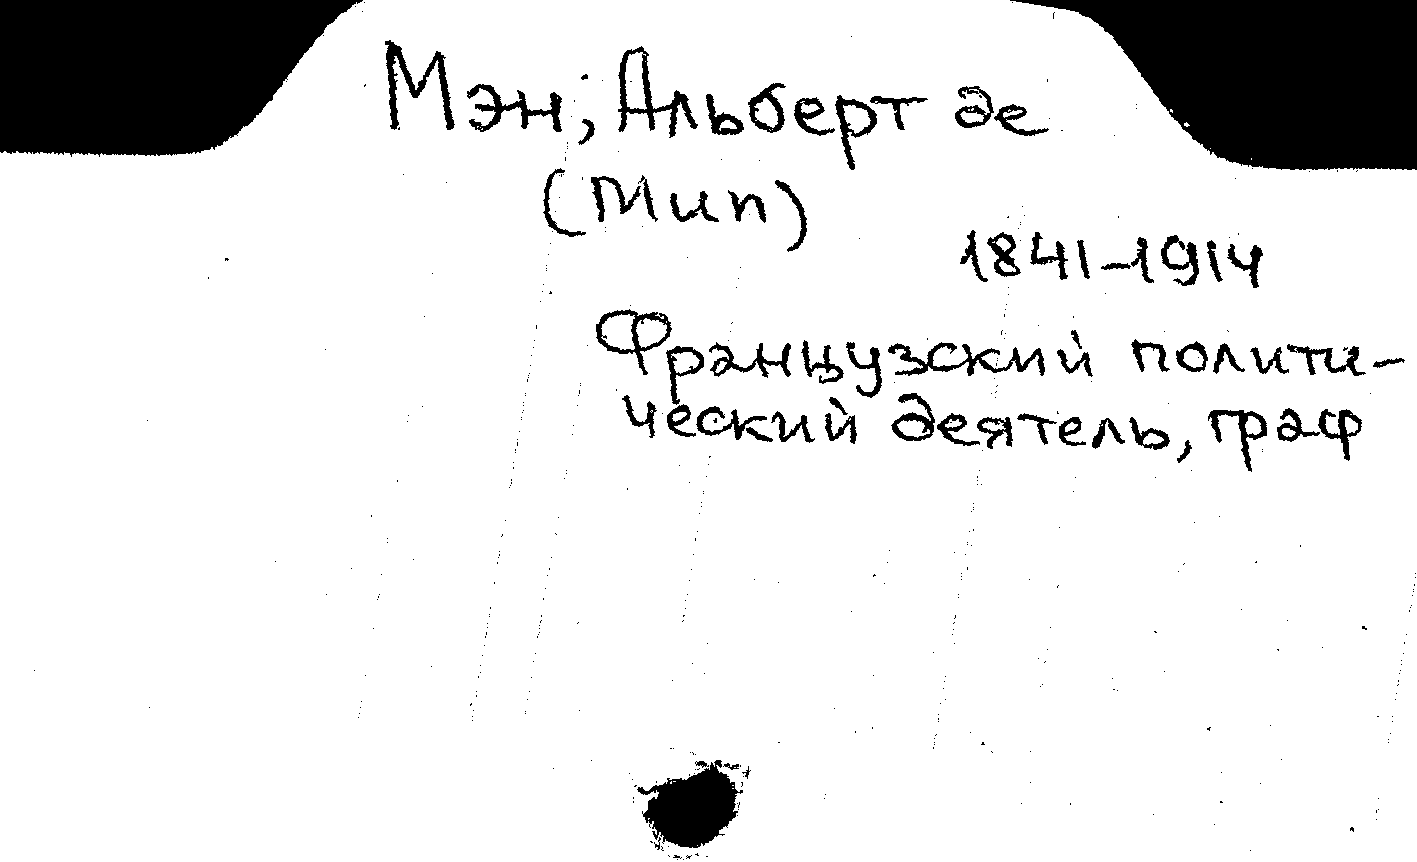 Мэн, Альберт де
(Мип)
1841-1914
Французский полити-
ческий деятель, граф